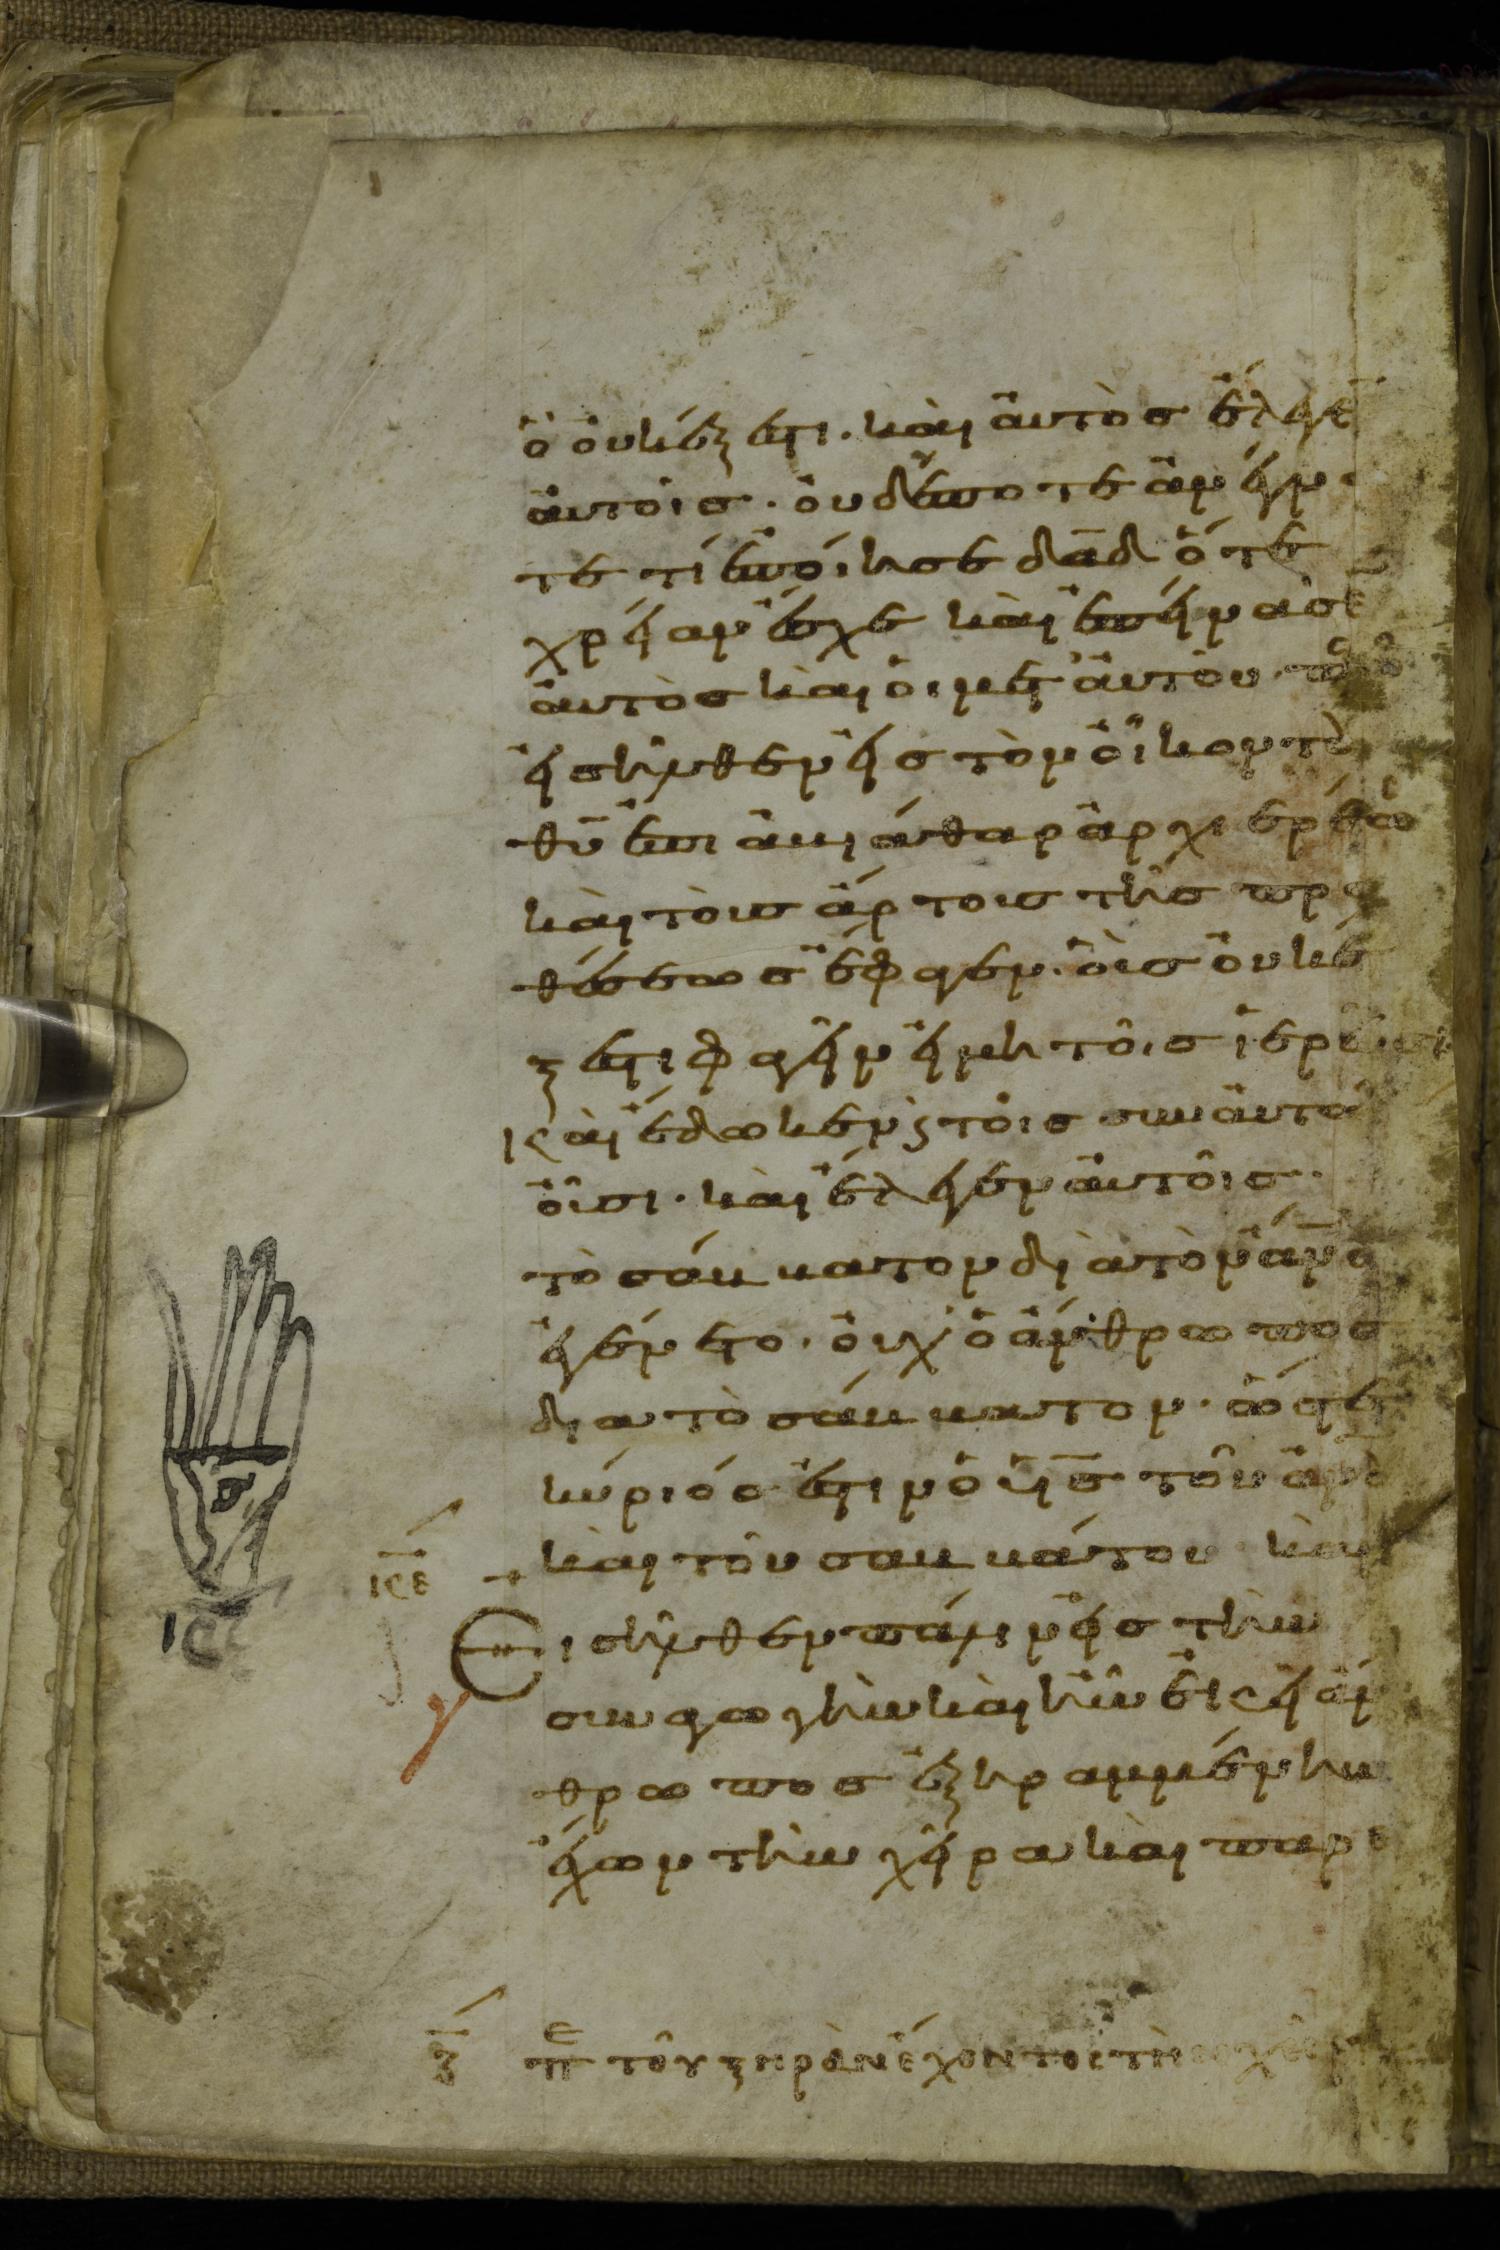 ὃ οὐκ ἔξεστι. καὶ αὐτὸς ἔλεγε
αὐτοῖς. οὐδέποτε ἀνέγνω
τε τί ἐποίησε δᾱδ ὅτε
χρείαν ἔσχε καὶ ἐπείνασε
αὐτὸς καὶ οἱ μετ αὐτοῦ. πῶς
εἰσῆλθεν εἰς τὸν οἶκον τοῦ
θῡ ἐπι ἀβιάθαρ ἀρχιερέως
καὶ τοὺς ἄρτους τῆς προ
θέσεως ἔφαγεν. οὓς οὐκ ἔ
ξεστι φαγεῖν εἰ μὴ τοῖς ἱερεῦσι
καὶ ἔδωκεν ϗ τοῖς σὺν αὐτῶ
οὖσι. καὶ ἔλεγεν αὐτοῖς.
τὸ σάββατον διὰ τὸν ἄνον
ἐγένετο. οὐχ ὁ ἄνθρωπος
δια τὸ σάββατον. ὥστε
κύριός ἐστιν ὁ ῡς τοῦ ἀνου
καὶ τοῦ σαββάτου καὶ
Εἰσῆλθεν πάλιν εἰς τὴν
συναγωγὴν καὶ ἦν ἐκεῖ ἄν
θρωπος ἐξηραμμένην
ἔχων τὴν χεῖρα καὶ παρε
ζ̄ πε τοῦ ξηρὰν ἔχοντος τὴν χεῖρα